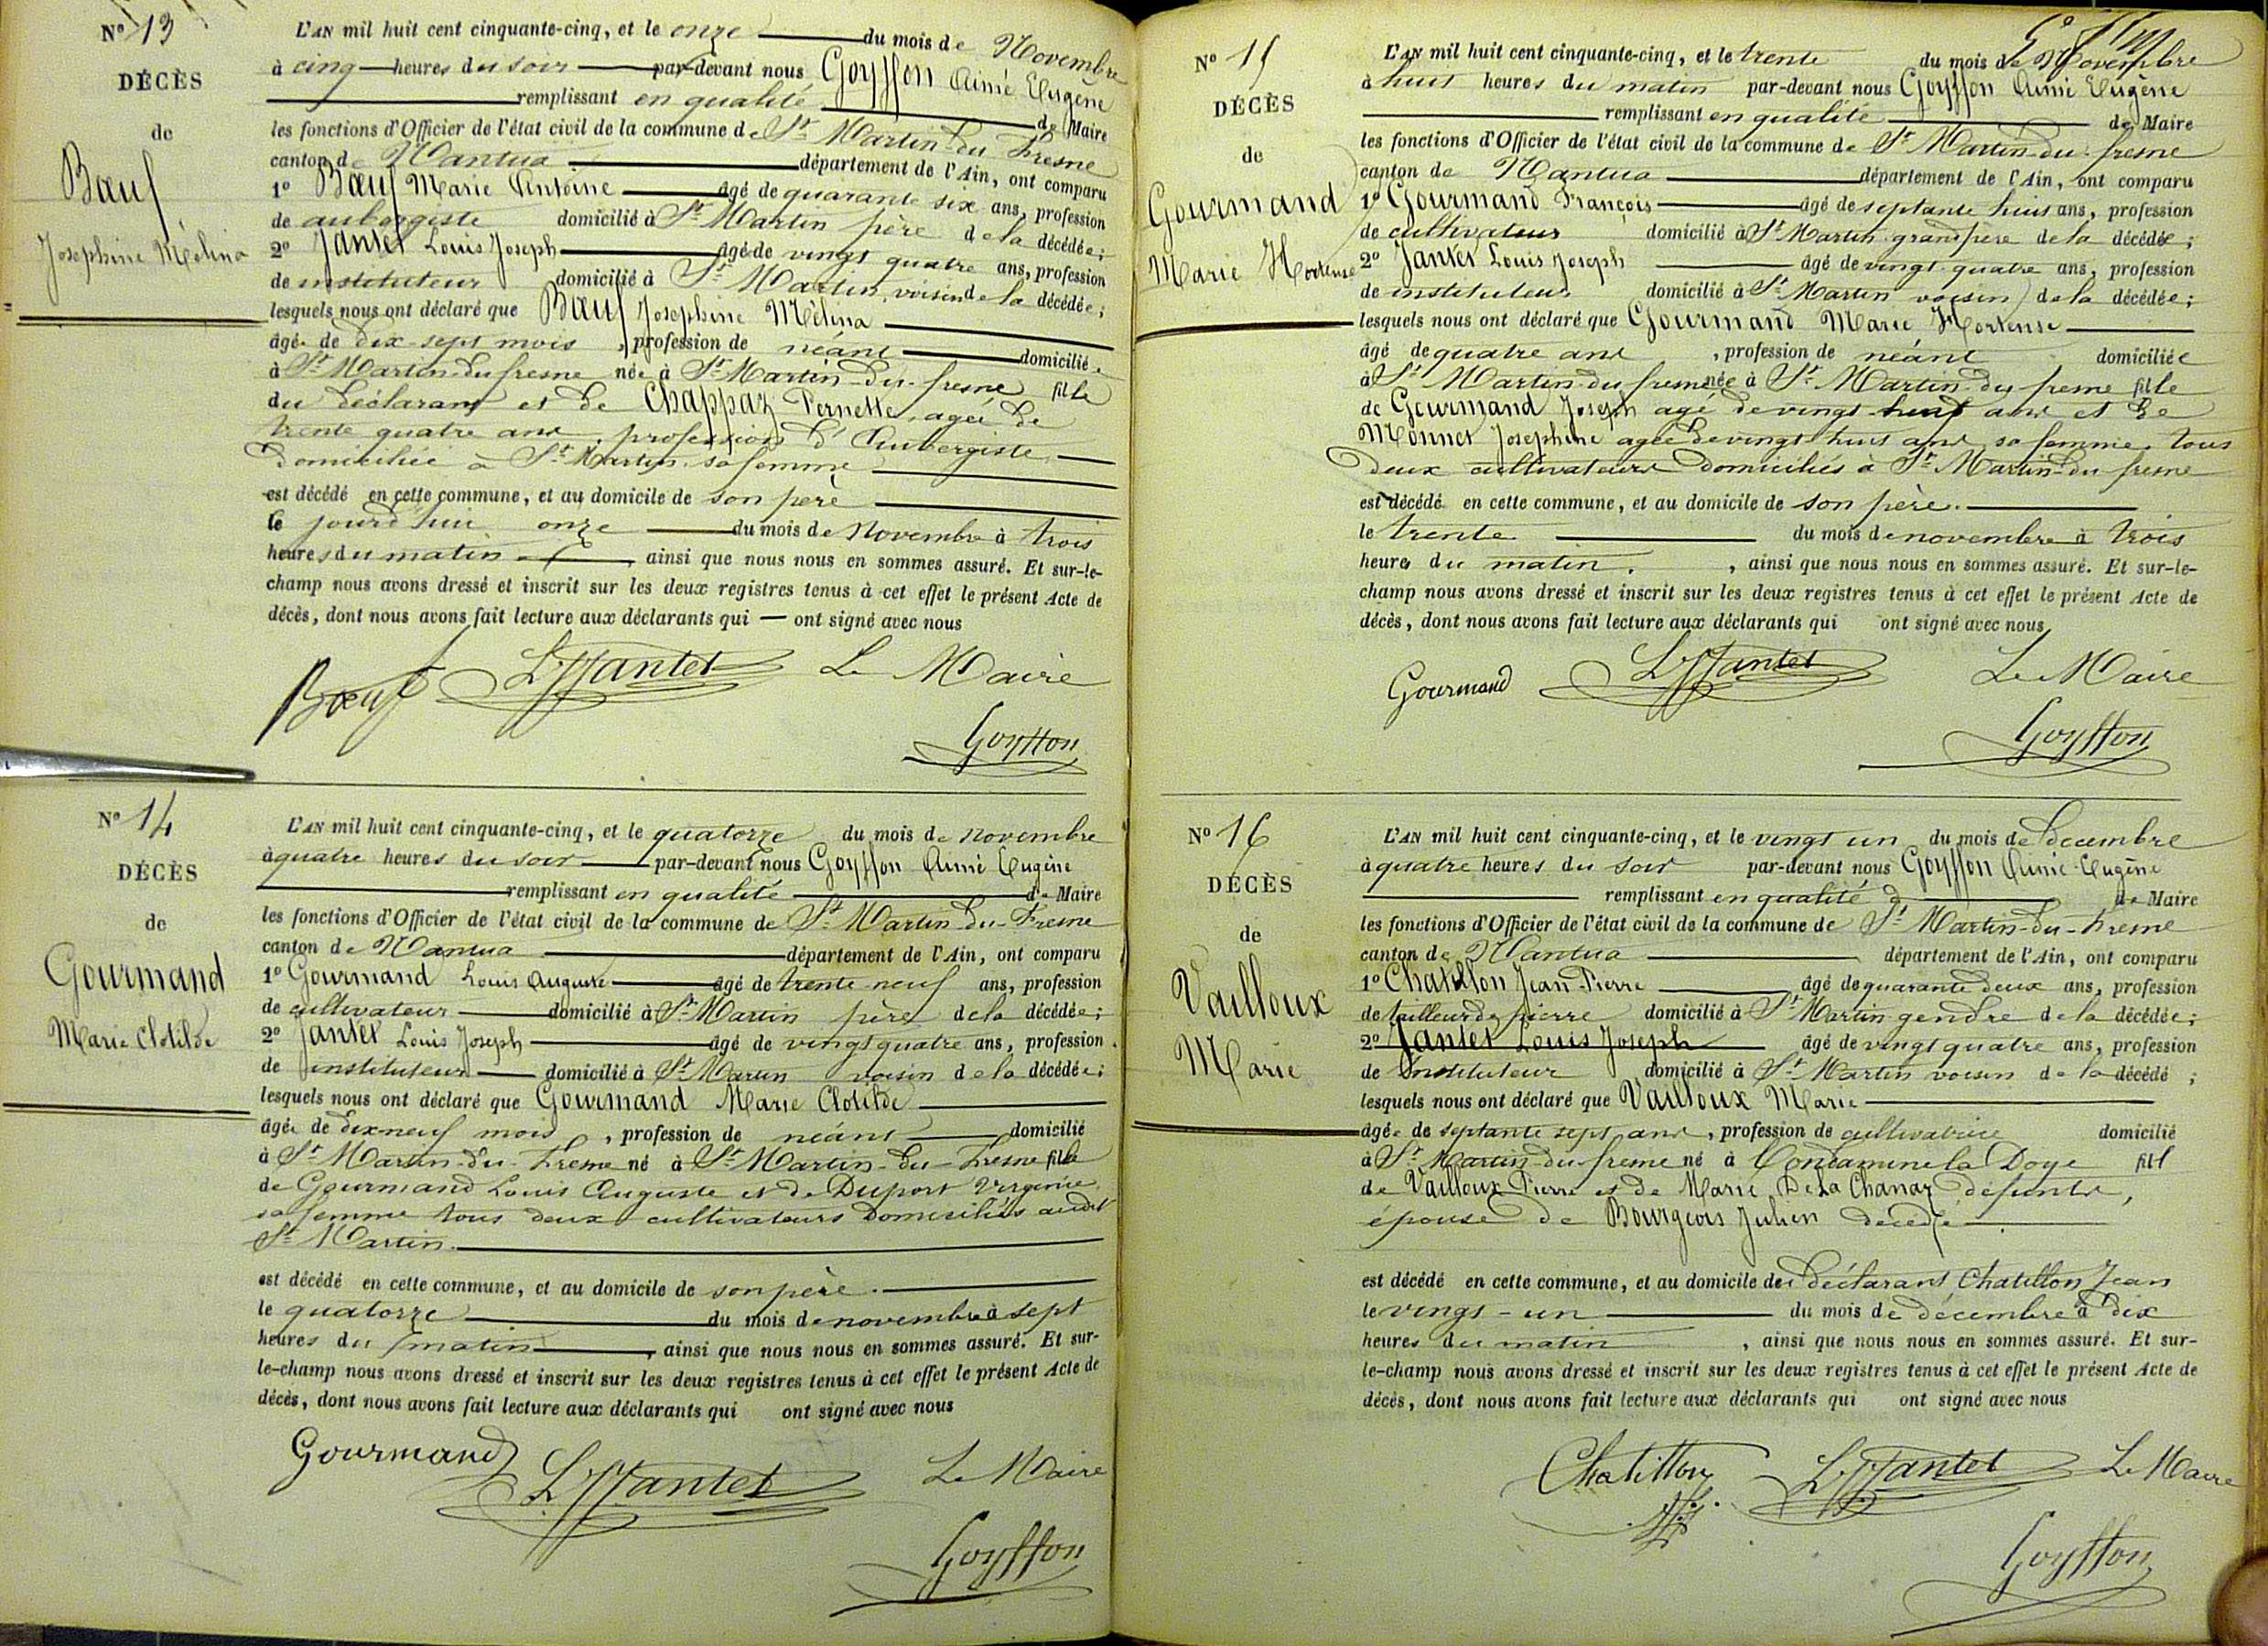 N° 13
DÉCÈS
de
Bœuf
Josephine Mélina
L'AN mil huit cent cinquante-cinq, et le onze du mois de Novembre
à cinq heures du soir par-devant nous Goyffon Aimé Eugène
remplissant en qualité de Maire
les fonctions d'Officier de l'état civil de la commune de St Martin du Fresne
canton de Nantua département de l'Ain, ont comparu
1° Bœuf Marie Antoine âgé de quarante six ans, profession
de aubergiste domicilié à St Martin père de la décédée;
2° Jantet Louis Joseph âgé de vingt quatre ans, profession
de instituteur domicilié à St Martin, voisin de la décédée;
lesquels nous ont déclaré que Bœuf Josephine Mélina
âgée de dix-sept mois, profession de néant domicilié
à St Martin-du fresne née à St Martin-du-fresne fille
du déclarant et de Chappaz Pernette, agée de
trente quatre ans, profession d'Aubergiste
Domiciliée à St Martin sa femme
est décédé en cette commune, et au domicile de son père
le jourd'hui onze du mois de Novembre à trois
heures du matin, ainsi que nous nous en sommes assuré. Et sur-le-
champ nous avons dressé et inscrit sur les deux registres tenus à cet effet le présent Acte de
décès, dont nous avons fait lecture aux déclarants qui — ont signé avec nous
Bœuf LJJantet Le Maire
Goyffon
N° 14
DÉCÈS
de
Gourmand
Marie Clotilde
L'AN mil huit cent cinquante-cinq, et le quatorze du mois de novembre
à quatre heures du soir par-devant nous Goyffon Aimé Eugène
remplissant en qualité de Maire
les fonctions d'Officier de l'état civil de la commune de St Martin-du-Fresne
canton de Nantua département de l'Ain, ont comparu
1° Gourmand Louis Auguste âgé de trente neuf ans, profession
de cultivateur domicilié à St Martin père de la décédée;
2° Jantet Louis Joseph âgé de vingt quatre ans, profession
de instituteur domicilié à St Martin voisin de la décédée;
lesquels nous ont déclaré que Gourmand Marie Clotilde
âgée de dix-neuf mois, profession de néant domicilié
à St Martin-du-Fresne né à St Martin-du-Fresne fille
de Gourmand Louis Auguste et de Duport Virginie
sa femme tous deux cultivateurs Domiciliés audit
St Martin.
est décédé en cette commune, et au domicile de son père.
le quatorze du mois de novembre à sept
heures du matin, ainsi que nous nous en sommes assuré. Et sur-
le-champ nous avons dressé et inscrit sur les deux registres tenus à cet effet le présent Acte de
décès, dont nous avons fait lecture aux déclarants qui ont signé avec nous
Gourmand LJJantet Le Maire
Goyffon
N° 15
DÉCÈS
de
Gourmand
Marie Hortense
L'AN mil huit cent cinquante-cinq, et le trente du mois de Novembre
à huit heures du matin par-devant nous Goyffon Aimé Eugène
remplissant en qualité de Maire
les fonctions d'Officier de l'état civil de la commune de St Martin-du-fresne
canton de Nantua département de l'Ain, ont comparu
1° Gourmand François âgé de septante huit ans, profession
de cultivateur domicilié à St Martin grand père de la décédée;
2° Jantet Louis Joseph âgé de vingt-quatre ans, profession
de instituteur domicilié à St Martin voisin de la décédée;
lesquels nous ont déclaré que Gourmand Marie Hortense
âgé de quatre ans, profession de néant domiciliée
à St Martin-du fresne née à St Martin-du fresne fille
de Gourmand Joseph agé de vingt huit ans et de
Monnet Josephine agée de vingt huit ans, sa femme, tous
deux cultivateurs Domiciliés à St Martin-du fresne
est décédé en cette commune, et au domicile de son père.
le trente du mois de novembre à trois
heures du matin, ainsi que nous nous en sommes assuré. Et sur-le-
champ nous avons dressé et inscrit sur les deux registres tenus à cet effet le présent Acte de
décès, dont nous avons fait lecture aux déclarants qui ont signé avec nous
Gourmand LJJantet Le Maire
Goyffon
N° 16
DÉCÈS
de
Vailloux
Marie
L'AN mil huit cent cinquante-cinq, et le vingt un du mois de Decembre
à quatre heures du soir par-devant nous Goyffon Aimé Eugène
remplissant en qualité de Maire
les fonctions d'Officier de l'état civil de la commune de St Martin-du-Fresne
canton de Nantua département de l'Ain, ont comparu
1° Chatillon Jean-Pierre âgé de quarante deux ans, profession
de tailleur de pierre domicilié à St Martin gendre de la décédée;
2° Jantet Louis Joseph âgé de vingt quatre ans, profession
de instituteur domicilié à St Martin voisin de la décédé;
lesquels nous ont déclaré que Vailloux Marie
âgée de septante sept ans, profession de cultivatrice domicilié
à St Martin-du-fresne né à Condamine la Doye fill
de Vailloux Pierre et de Marie De La Chanaz défunts,
épouse de Bourgeois Julien decedé
est décédé en cette commune, et au domicile de déclarant Chatillon Jean
le vingt-un du mois de décembre à dix
heures du matin, ainsi que nous nous en sommes assuré. Et sur-
le-champ nous avons dressé et inscrit sur les deux registres tenus à cet effet le présent Acte de
décès, dont nous avons fait lecture aux déclarants qui ont signé avec nous
Chatillon LJJantet Le Maire
Goyffon